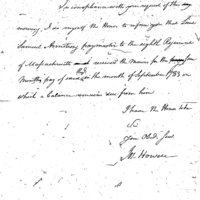 In compliance with your request of this
morning, I do myself the Honor to inform you that Lieut
Samuel Armstrong paymaster to the eighth Regiment
of Massachusetts received the Monies for the four
Months pay of in the month of September 1783 on
which a balance remains due from him
I have the Honor to be
Sir
your Obed. Serv
Jn Howell